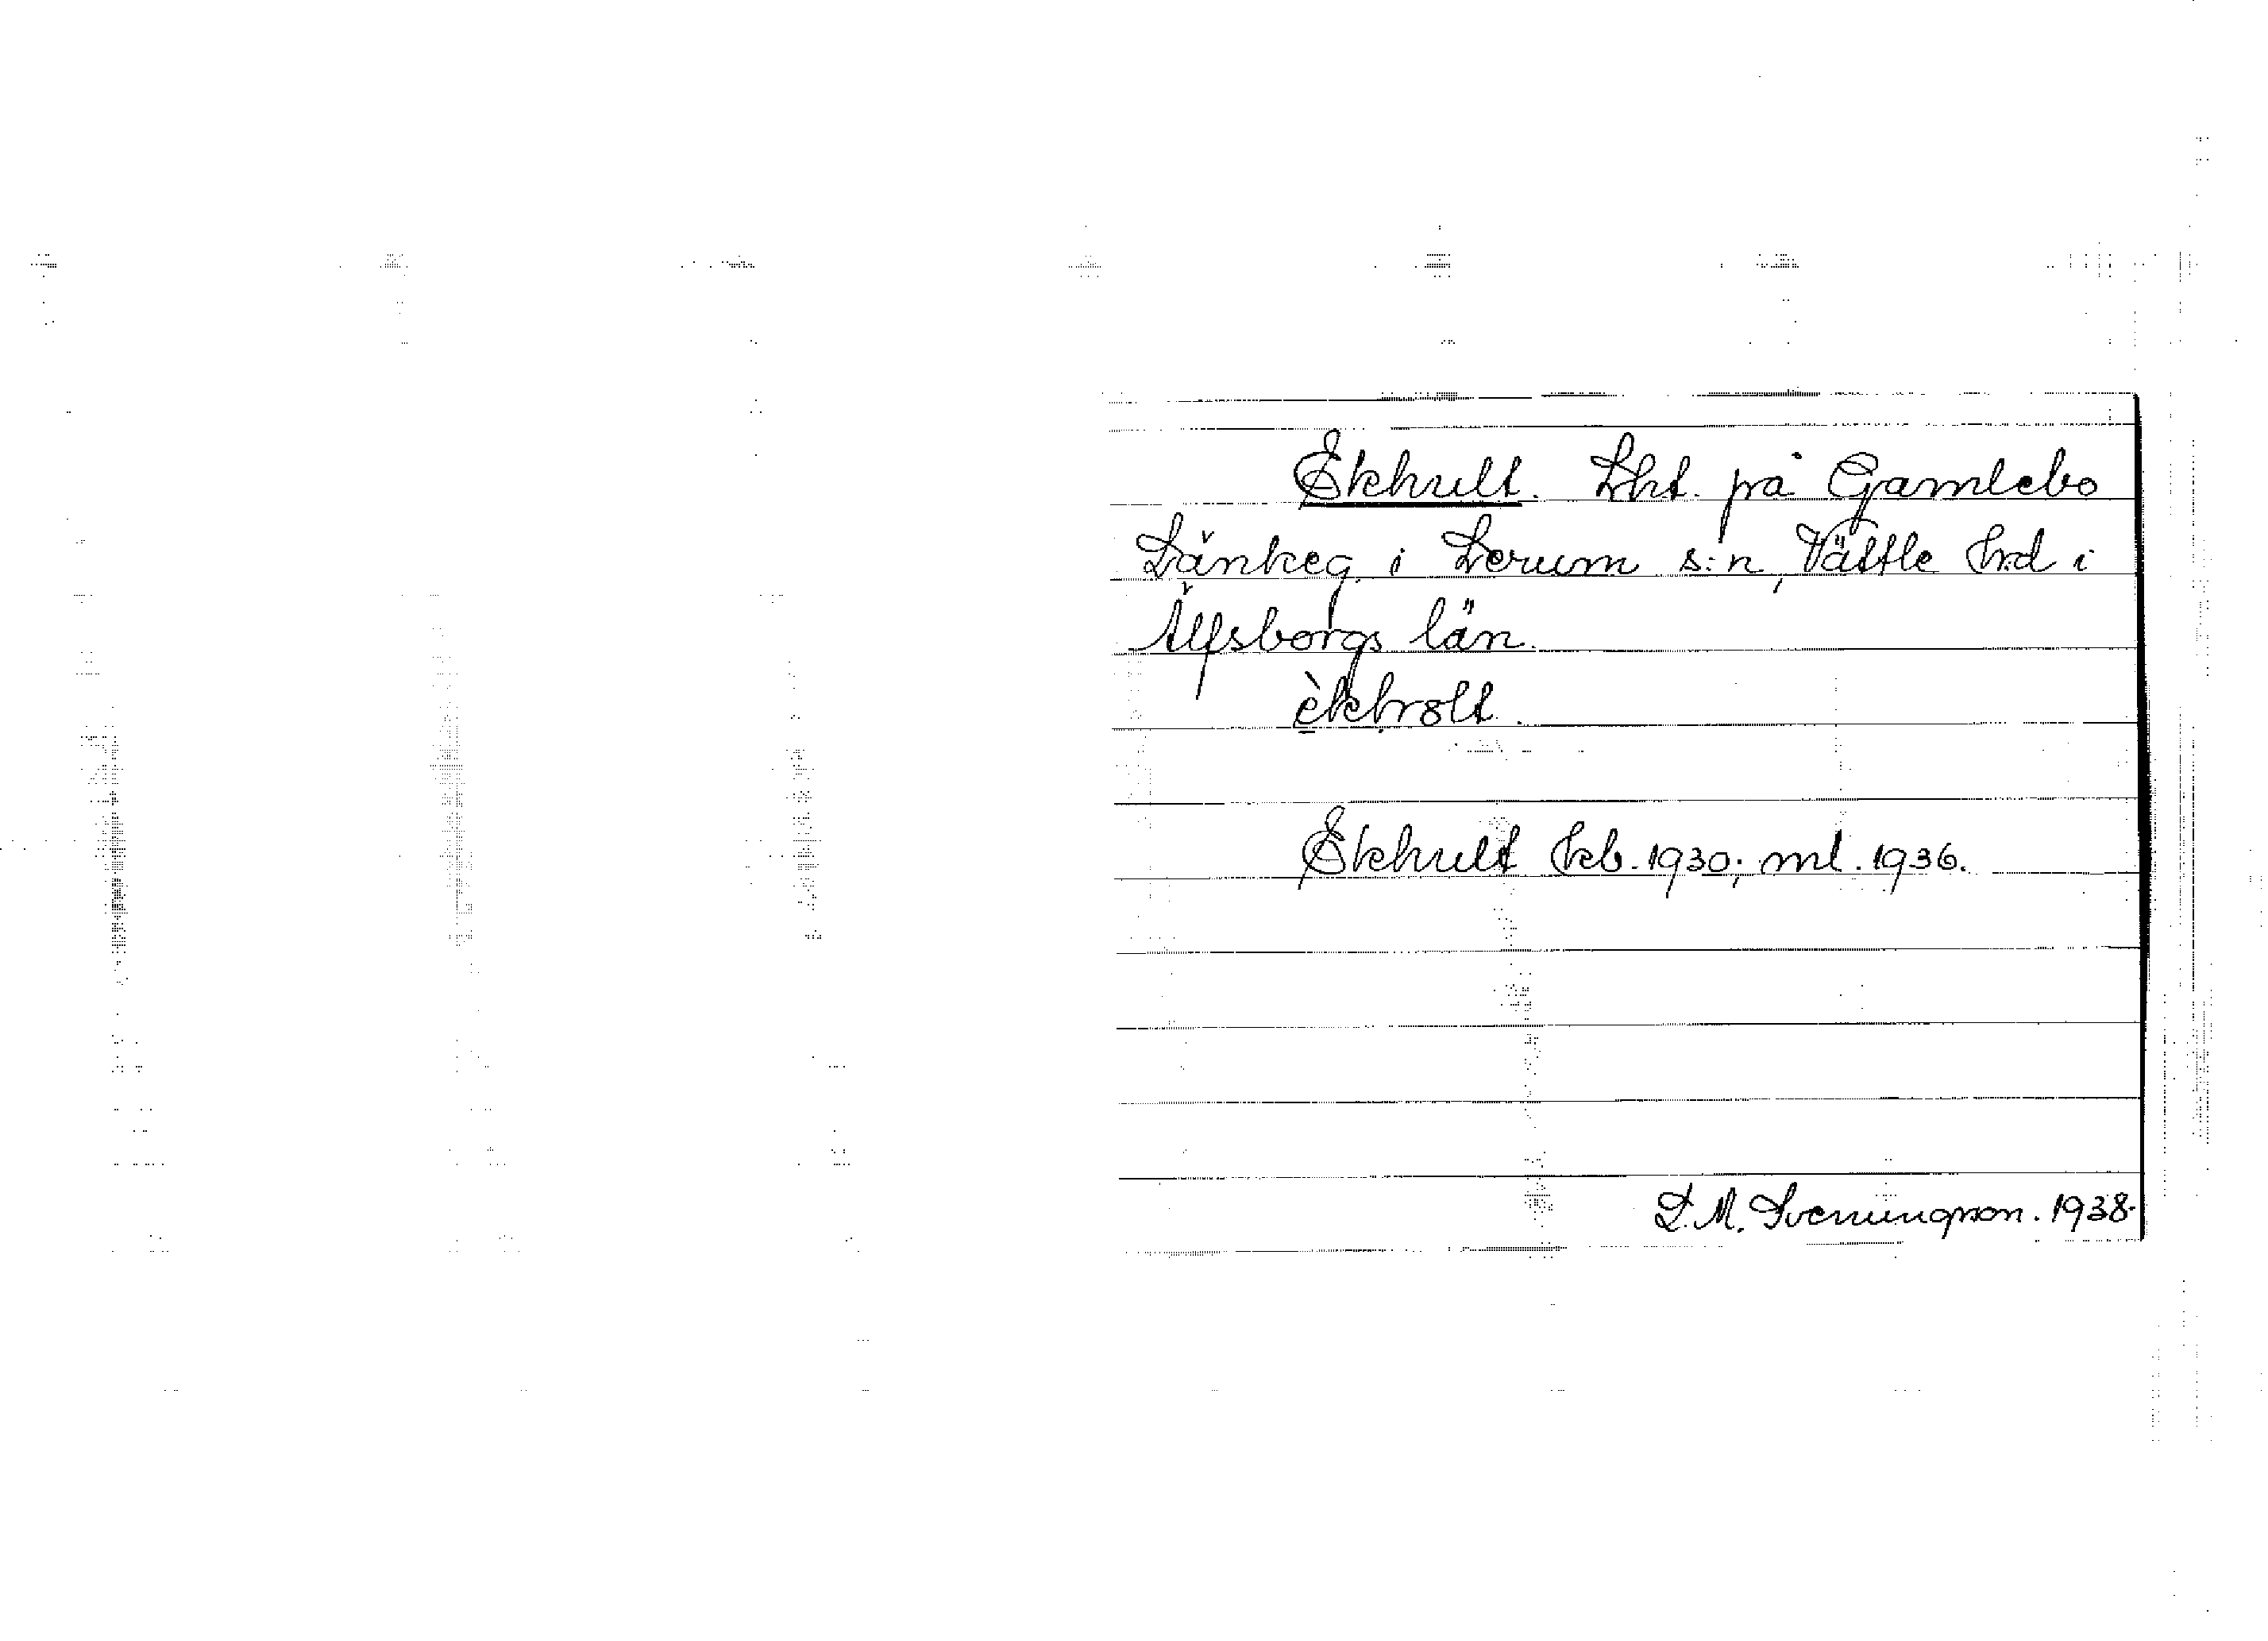 Ekhult. Lht. på Gamlebo
Länkeg. i Lerum s:n, Vättle hd i
Älfsborgs län.
èkhꞷlt.
Ekhult kb. 1930; ml. 1936.
L. M. Svenungson. 1938.